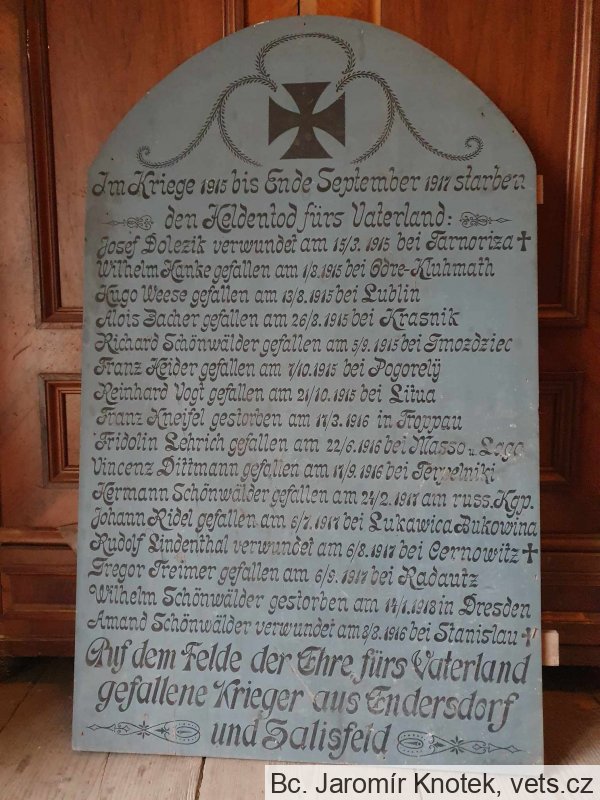 Im Kriege 1915 bis Ende September 1917 starben
den Heldentod fürs Vaterland:
Josef Dolezik verwundet am 15/3. 1915 bei Tarnoriza †
Wilhelm Hanke gefallen am 1/8. 1915 bei Odre-Kluhmath
Hugo Weese gefallen am 13/8. 1915 bei Lublin
Alois Bacher gefallen am 26/8. 1915 bei Krasnik
Richard Schönwälder gefallen am 5/9. 1915 bei Gmozdziec
Franz Heider gefallen am 7/10. 1915 bei Pogorely
Reinhard Vogt gefallen am 21/10. 1915 bei Litua
Franz Kneifel gestorben am 17/3. 1916 in Troppau
Fridolin Lehrich gefallen am 22/6. 1916 bei Masso u. Lago
Vincenz Dittmann gefallen am 17/9. 1916 bei Perpelniki
Hermann Schönwälder gefallen am 24/2. 1917 am russ. Kgp.
Johann Ridel gefallen am 6/7. 1917 bei Lukawica Bukowina
Rudolf Lindenthal verwundet am 6/8. 1917 bei Cernowitz †
Gregor Freimer gefallen am 6/9. 1917 bei Radautz
Wilhelm Schönwälder gestorben am 14/1. 1918 in Dresden
Amand Schönwälder verwundet am 3/8. 1916 bei Stanislau †
Auf dem Felde der Ehre, fürs Vaterland
gefallene Krieger aus Endersdorf
und Salisfeld
Bc. Jaromír Knotek, vets.cz